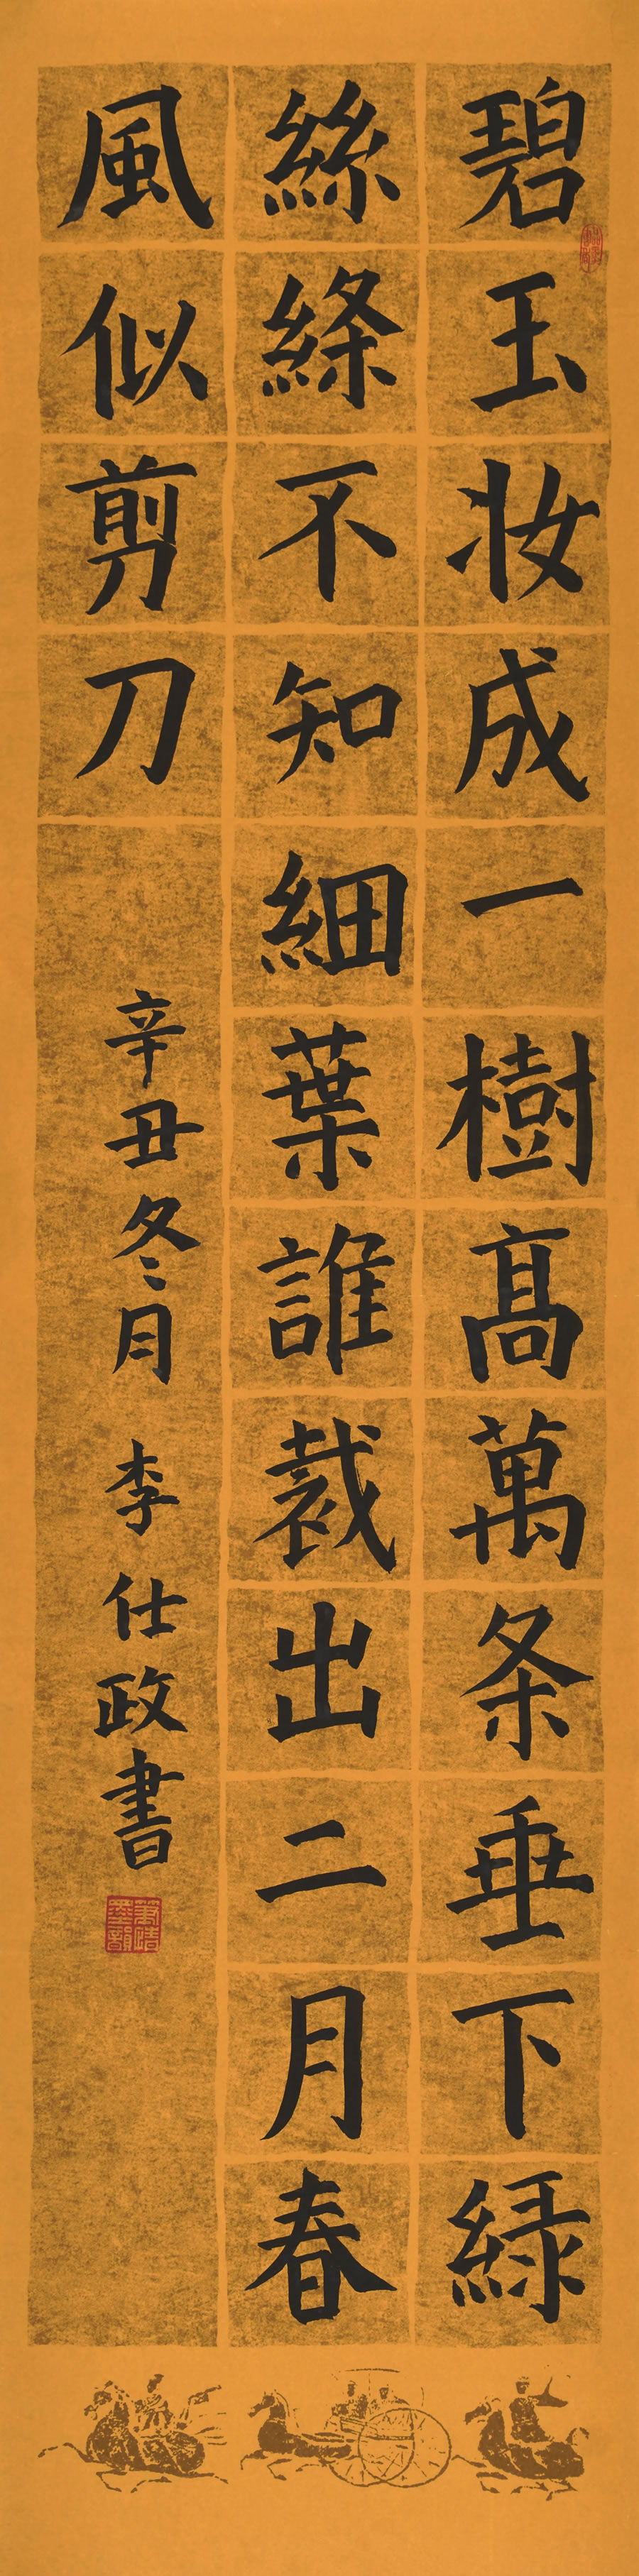 碧玉妆成一樹髙萬条垂下緑
絲絛不知細葉誰裁出二月春
風似剪刀
辛丑冬月 李仕政書